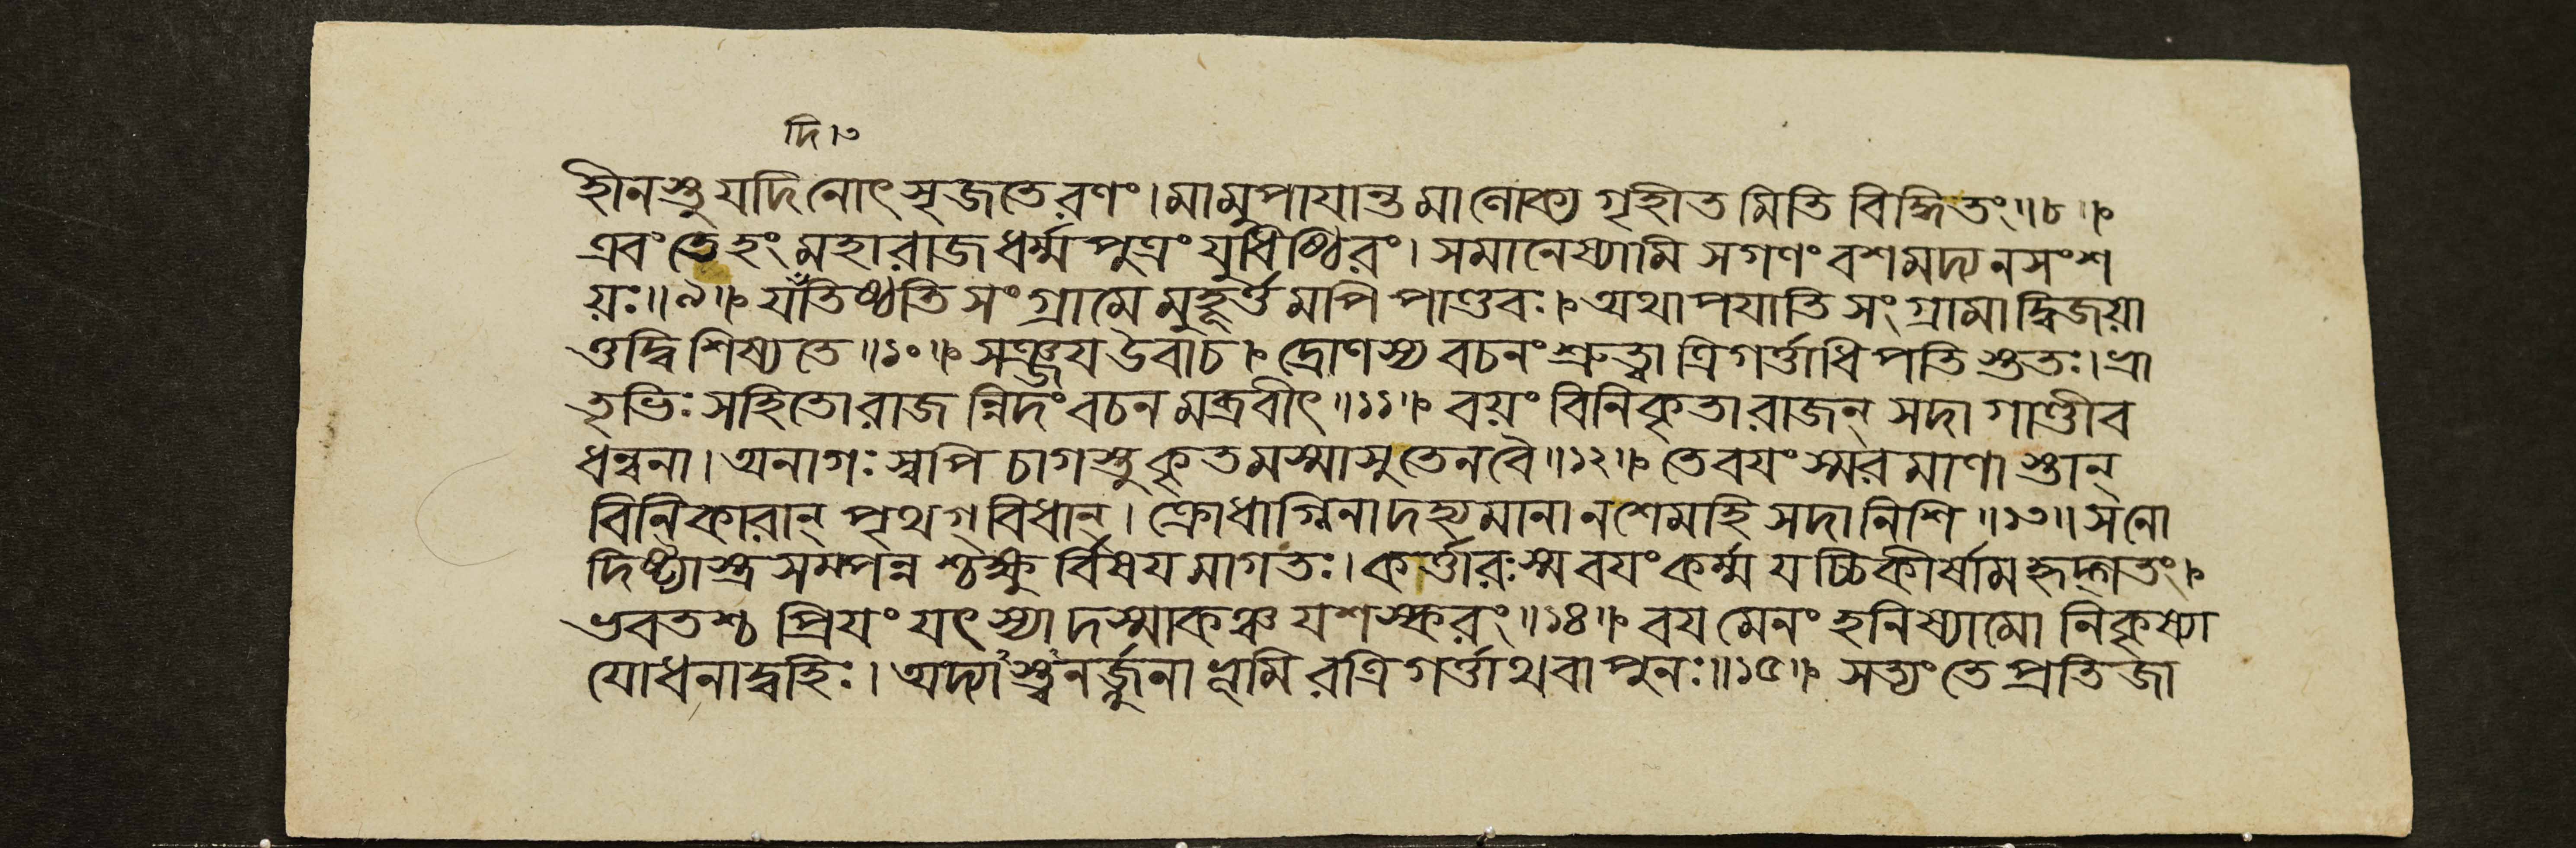 দি।৩
হীনস্তু যদি নোৎসৃজতে রণং। মামুপাযান্তমালোক্য গৃহীতমিতি বিদ্ধিতং॥৮॥
এবং তেহং মহারাজ ধর্ম্মপুত্রং যুধিষ্ঠিরং। সমানেষ্যামি সগণং বশমদ্য ন সংশ
য়ঃ॥৯॥ যঁতিষ্ঠতি সংগ্রামে মুহূর্ত্তমপি পাণ্ডবঃ। অথাপযাতি সংগ্রামাদ্বিজয়া
ত্তদ্বিশিষ্যতে॥১০॥ সঞ্জয উবাচ। দ্রোণস্য বচনং শ্রুত্বা ত্রিগর্ত্তাধিপতিস্ততঃ। ভ্রা
তৃভিঃ সহিতো রাজন্নিদং বচনমব্রবীৎ॥১১॥ বয়ং বিনিকৃতা রাজন্ সদা গাণ্ডীব
ধন্বনা। অনাগঃস্বপি চাগস্তু কৃতমস্মাসু তেন বৈ॥১২॥ তে বযং স্মরমাণাস্তান্
বিনিকারান্ পৃথগ্বিধান্। ক্রোধাগ্নিনা দহ্যমানা ন শেমহি সদা নিশি॥১৩॥ স নো
দিষ্ট্যাস্ত্রসমপন্নশ্চক্ষুর্বিষযমাগতঃ। কর্ত্তারঃ স্ম বযং কর্ম্ম যচ্চিকীর্ষাম হৃদ্গতং।
ভবতশ্চ প্রিযং যৎ স্যাদস্মাকঞ্চ যশস্করং॥১৪॥ বযমেনং হনিষ্যামো নিকৃষ্যা
যোধনাদ্বহিঃ। অদ্যাস্ত্বনর্জ্জুনা ভূমিরত্রিগর্ত্তাথবা পুনঃ॥১৫॥ সত্যং তে প্রতিজা